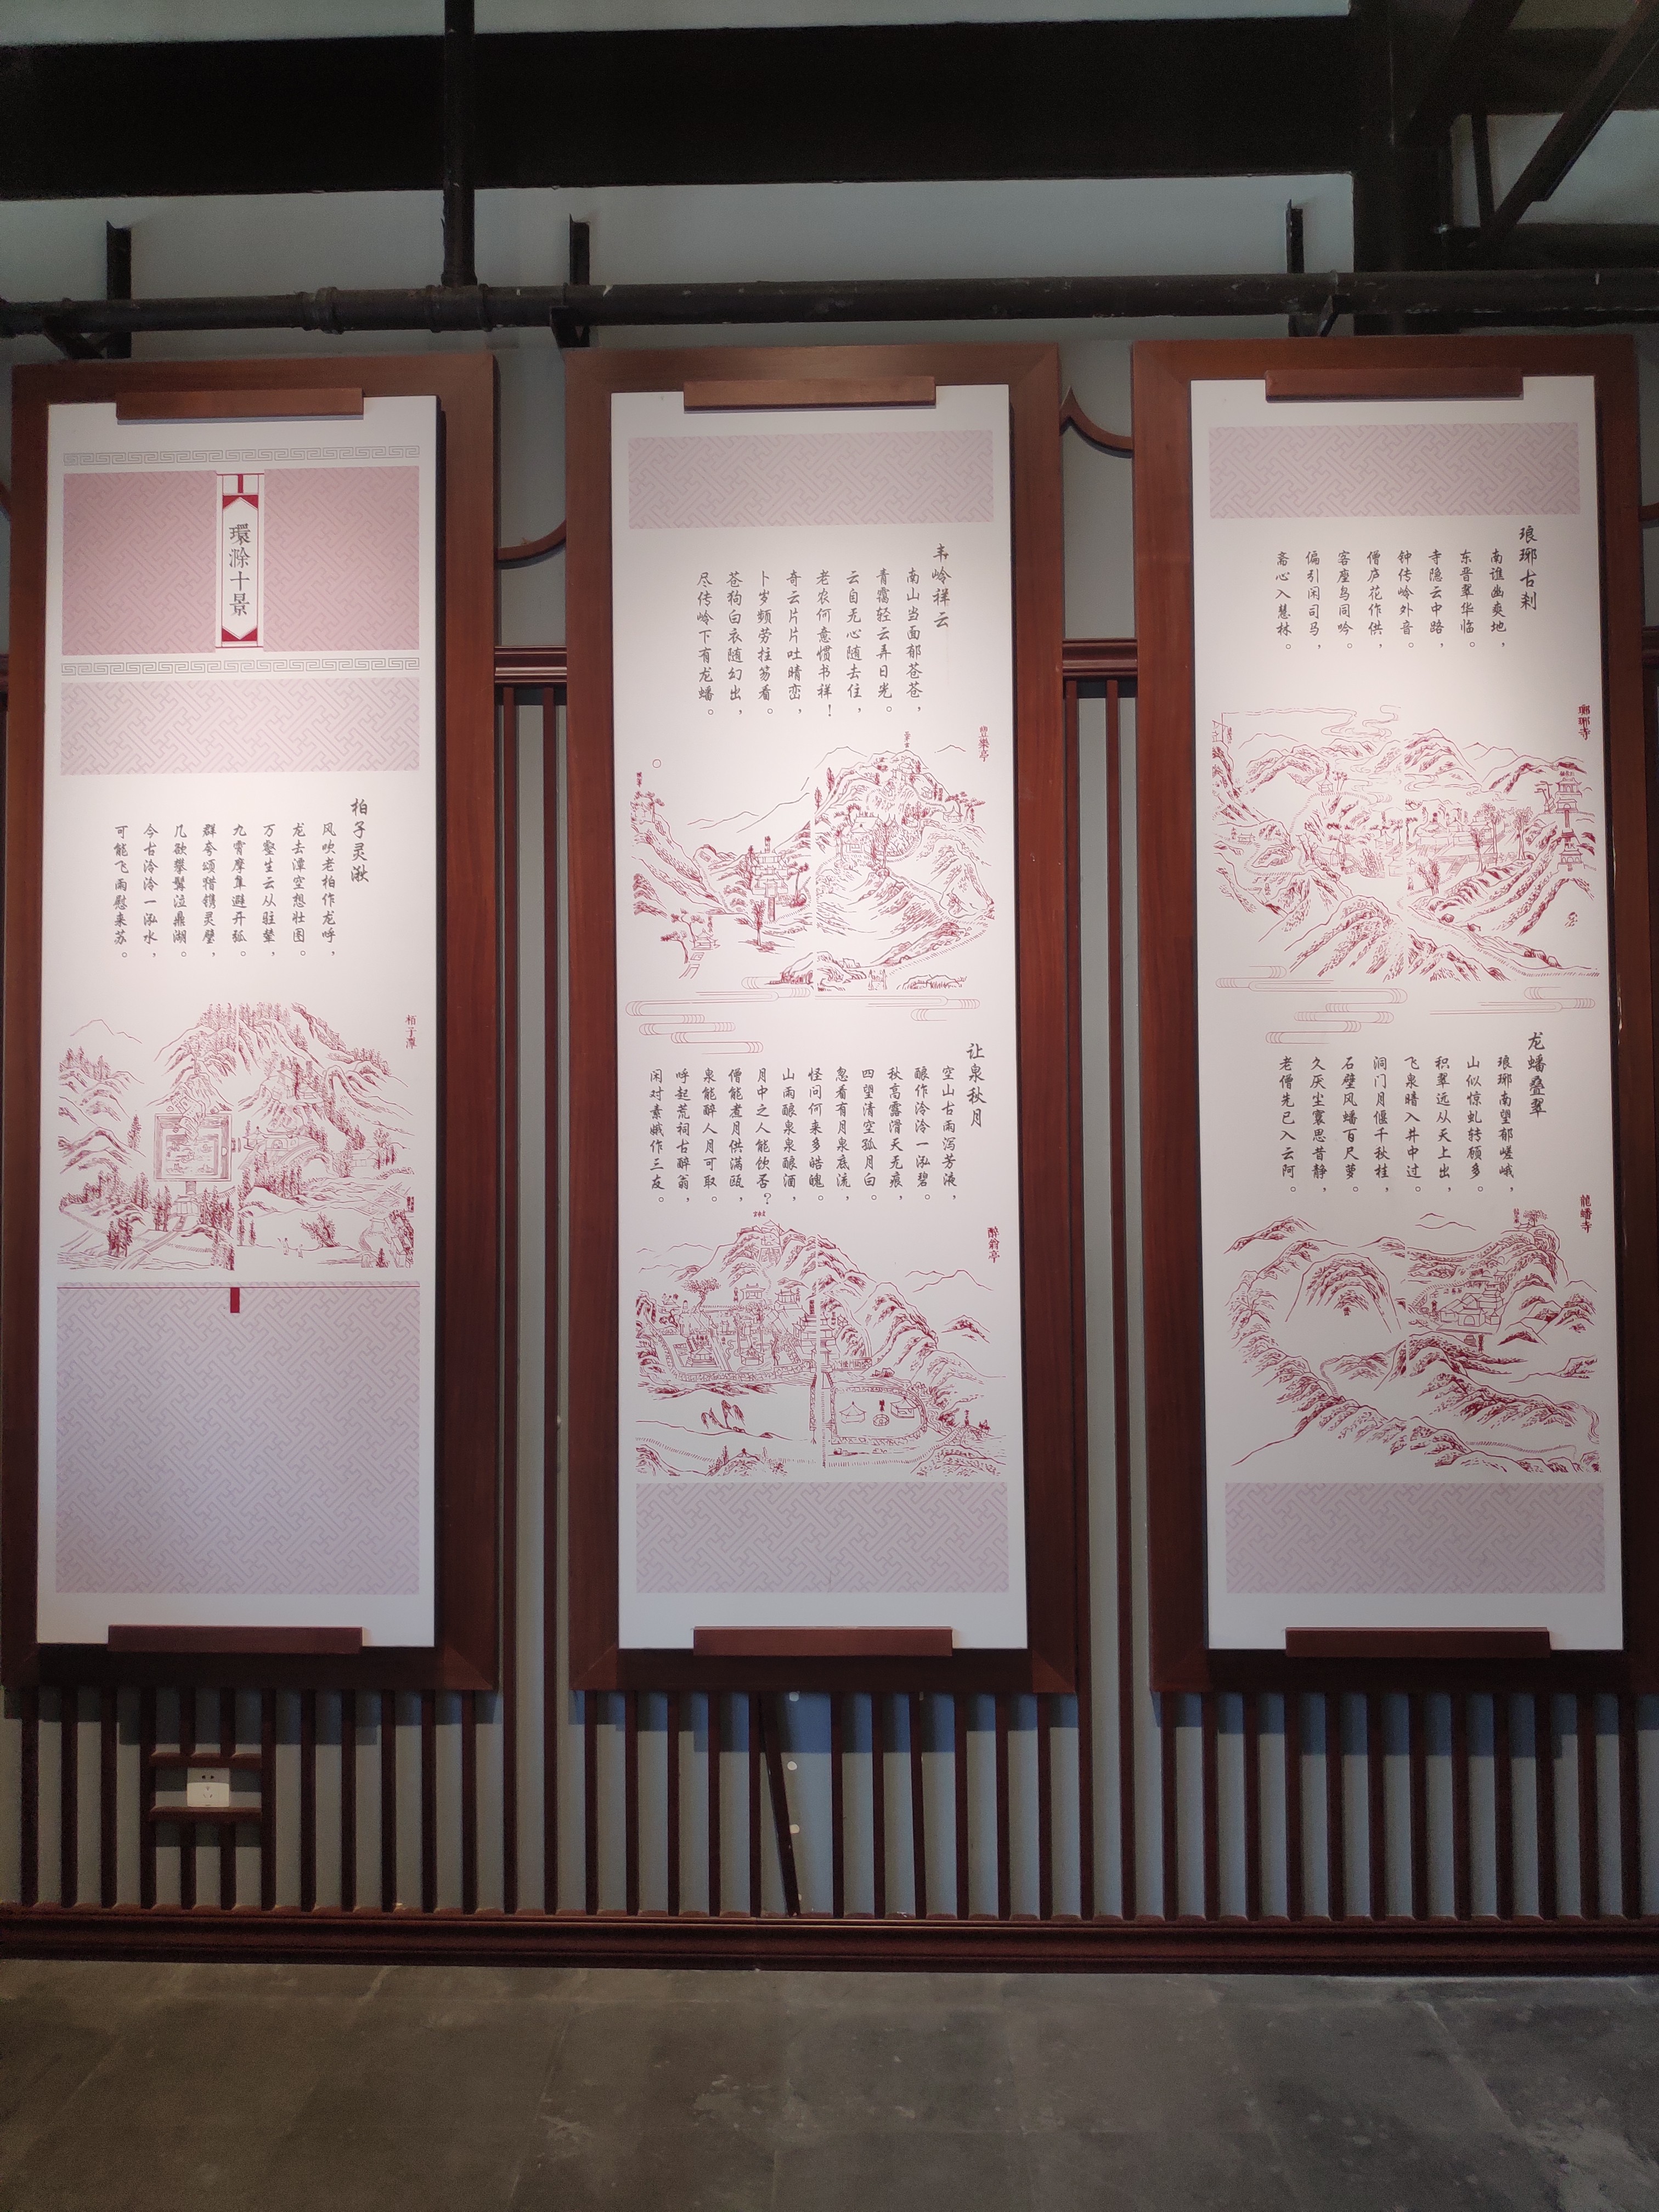 環滁十景
柏子灵湫
风吹老柏作龙呼，
龙去潭空想壮图。
万壑生云从驻辇，
九霄摩隼避开弧。
群夸颂猎镌灵璧，
几欲攀髯泣鼎湖。
今古泠泠一泓水，
可能飞雨慰来苏。
柏子潭
韦岭祥云
南山当面郁苍苍，
青霭轻云弄日光。
云自无心随去住，
老农何意惯书祥！
奇云片片吐晴峦，
卜岁频劳拄笏看。
苍狗白衣随幻出，
尽传岭下有龙蟠。
豐樂亭
让泉秋月
空山古雨泻芳液，
酿作泠泠一泓碧。
秋高露滑天无痕，
四望清空孤月白。
忽看有月泉底流，
怪问何来多皓魄。
山雨酿泉泉酿酒，
月中之人能饮否？
僧能煮月供满瓯，
泉能醉人月可取。
呼起荒祠古醉翁，
闲对素娥作三友。
醉翁亭
琅琊古刹
南谯幽爽地，
东晋翠华临。
寺隐云中路，
钟传岭外音。
僧庐花作供，
客座鸟同吟。
偏引闲司马，
斋心入慧林。
瑯琊寺
龙蟠叠翠
琅琊南望郁嵯峨，
山似惊虬转顾多。
积翠远从天上出，
飞泉暗入井中过。
洞门月偃千秋桂，
石壁风蟠百尺萝。
久厌尘寰思昔静，
老僧先已入云阿。
龍蟠寺